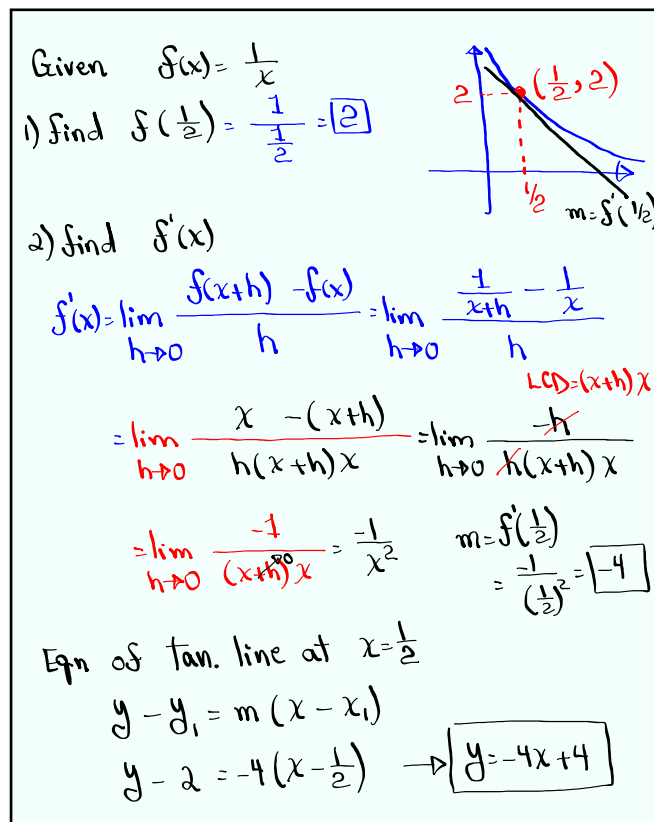 Given f(x) = 1/x
1) find f(1/2) = 1/(1/2) = 2
2 (1/2, 2)
1/2
m = f'(1/2)
2) find f'(x)
f'(x) = lim h→0 (f(x+h) - f(x))/h = lim h→0 (1/(x+h) - 1/x)/h
LCD = (x+h) x
= lim h→0 (x - (x+h))/(h(x+h) x) = lim h→0 -h/(h(x+h) x)
= lim h→0 -1/((x+h) x) = -1/x² m = f'(1/2)
0
= -1/(1/2)² = -4
Eqn of tan. line at x = 1/2
y - y₁ = m (x - x₁)
y - 2 = -4(x - 1/2) → y = -4x + 4